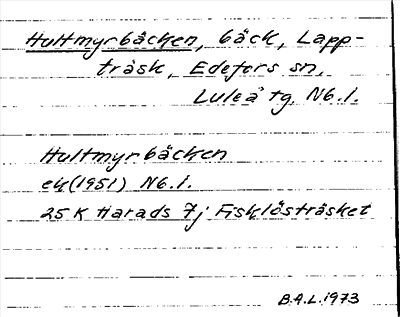 Hultmyrbäcken, bäck, Lapp-
träsk, Edefors sn.
Luleå tg. Nb. l.
Hultmyrbäcken
ek(1951) Nb. l.
25 K Harads 7j Fisklösträsket
B.A.L. 1973